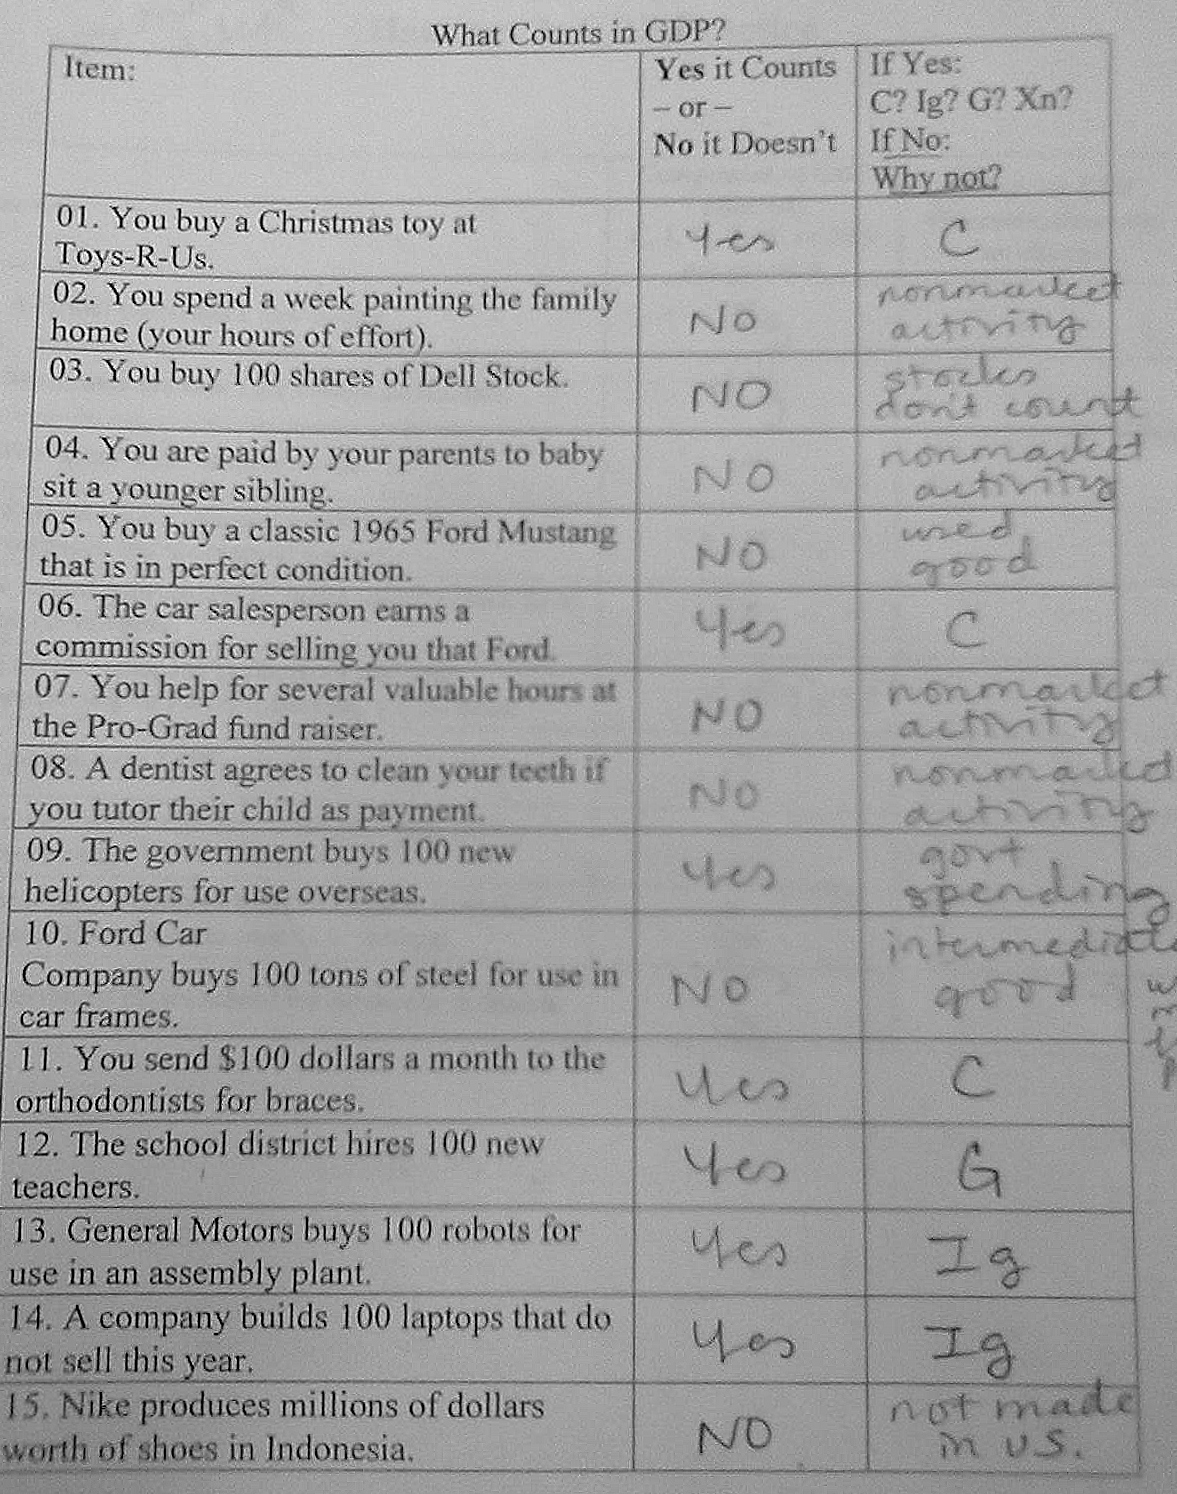 What Counts in GDP?
Item:
Yes it Counts
– or –
No it Doesn't
If Yes:
C? Ig? G? Xn?
If No:
Why not?
01. You buy a Christmas toy at
Toys-R-Us.
Yes
C
02. You spend a week painting the family
home (your hours of effort).
No
nonmarket
activity
03. You buy 100 shares of Dell Stock.
NO
stocks
don't count
04. You are paid by your parents to baby
sit a younger sibling.
NO
nonmarket
activity
05. You buy a classic 1965 Ford Mustang
that is in perfect condition.
NO
used
good
06. The car salesperson earns a
commission for selling you that Ford.
Yes
C
07. You help for several valuable hours at
the Pro-Grad fund raiser.
NO
nonmarket
activity
08. A dentist agrees to clean your teeth if
you tutor their child as payment.
No
nonmarket
activity
09. The government buys 100 new
helicopters for use overseas.
Yes
govt
spending
10. Ford Car
Company buys 100 tons of steel for use in
car frames.
NO
intermediate
good
11. You send $100 dollars a month to the
orthodontists for braces.
Yes
C
12. The school district hires 100 new
teachers.
Yes
G
13. General Motors buys 100 robots for
use in an assembly plant.
Yes
Ig
14. A company builds 100 laptops that do
not sell this year.
Yes
Ig
15. Nike produces millions of dollars
worth of shoes in Indonesia.
NO
not made
in US.